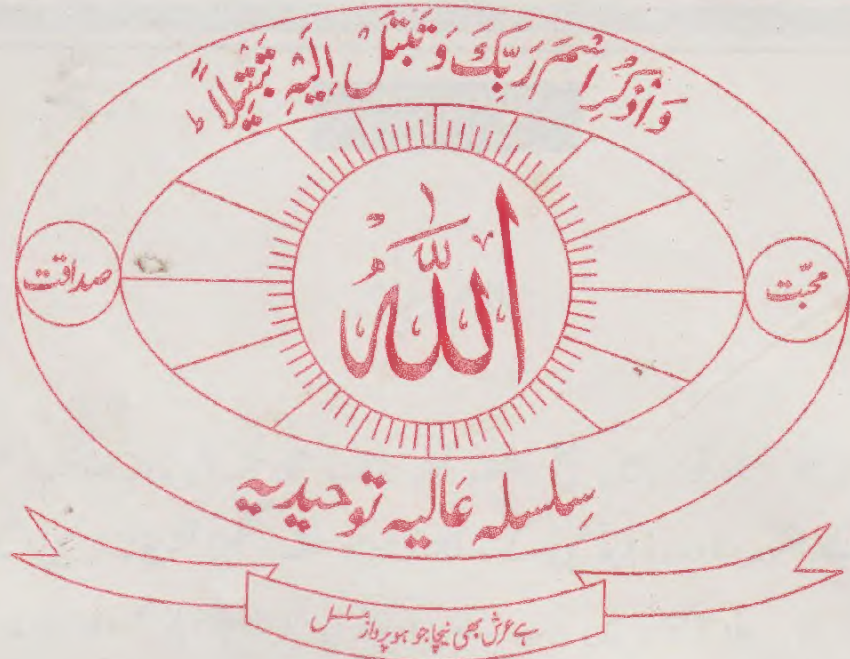 وَاذْكُرِ اسْمَ رَبِّكَ وَتَبَتَّلْ اِلَيْهِ تَبْتِيْلًا ط
محبّت
اللّٰهُ
صداقت
سِلسلہ عَالیہ توحیدیہ
ہے عرش بھی نیچا جو ہو پرواز مسلسل